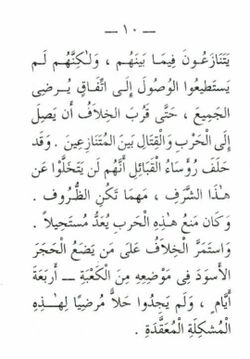 — ١٠ —
يَتَنَازَعُونَ فِيمَا بَيْنَهُم ، وَلٰكِنَّهُم لَم
يَستَطِيعُوا الوُصُولَ إِلَى اتِّفَاقٍ يُـرضِى
الجَمِيعَ ، حَتَّى قَرُبَ الخِلَافُ أَن يَصِلَ
إِلَى الحَرْبِ وَالقِتَالِ بَينَ المُتَنَازِعِينَ . وَقَد
حَلَفَ رُؤَسَاءُ القَبَائِلِ أَنَّهُم لَن يَتَخَلَّوْا عَن
هٰـذَا الشَّرَفِ ، مَهمَا تَكُنِ الظُّـرُوفُ .
وَكَانَ مَنعُ هٰذِهِ الحَربِ يُعَدُّ مُستَحِيلاً .
وَاستَمَرَّ الخِلَافُ عَلَى مَن يَضَعُ الحَجَرَ
الأَسوَدَ فِى مَوْضِعِهِ مِنَ الكَعْبَةِ ــ أَربَعَةَ
أَيَّامٍ ، وَلَم يَجِدُوا حَلاًّ مُرضِيًا لِهٰـذِهِ
المُشكِلَةِ المُعَقَّدَةِ .